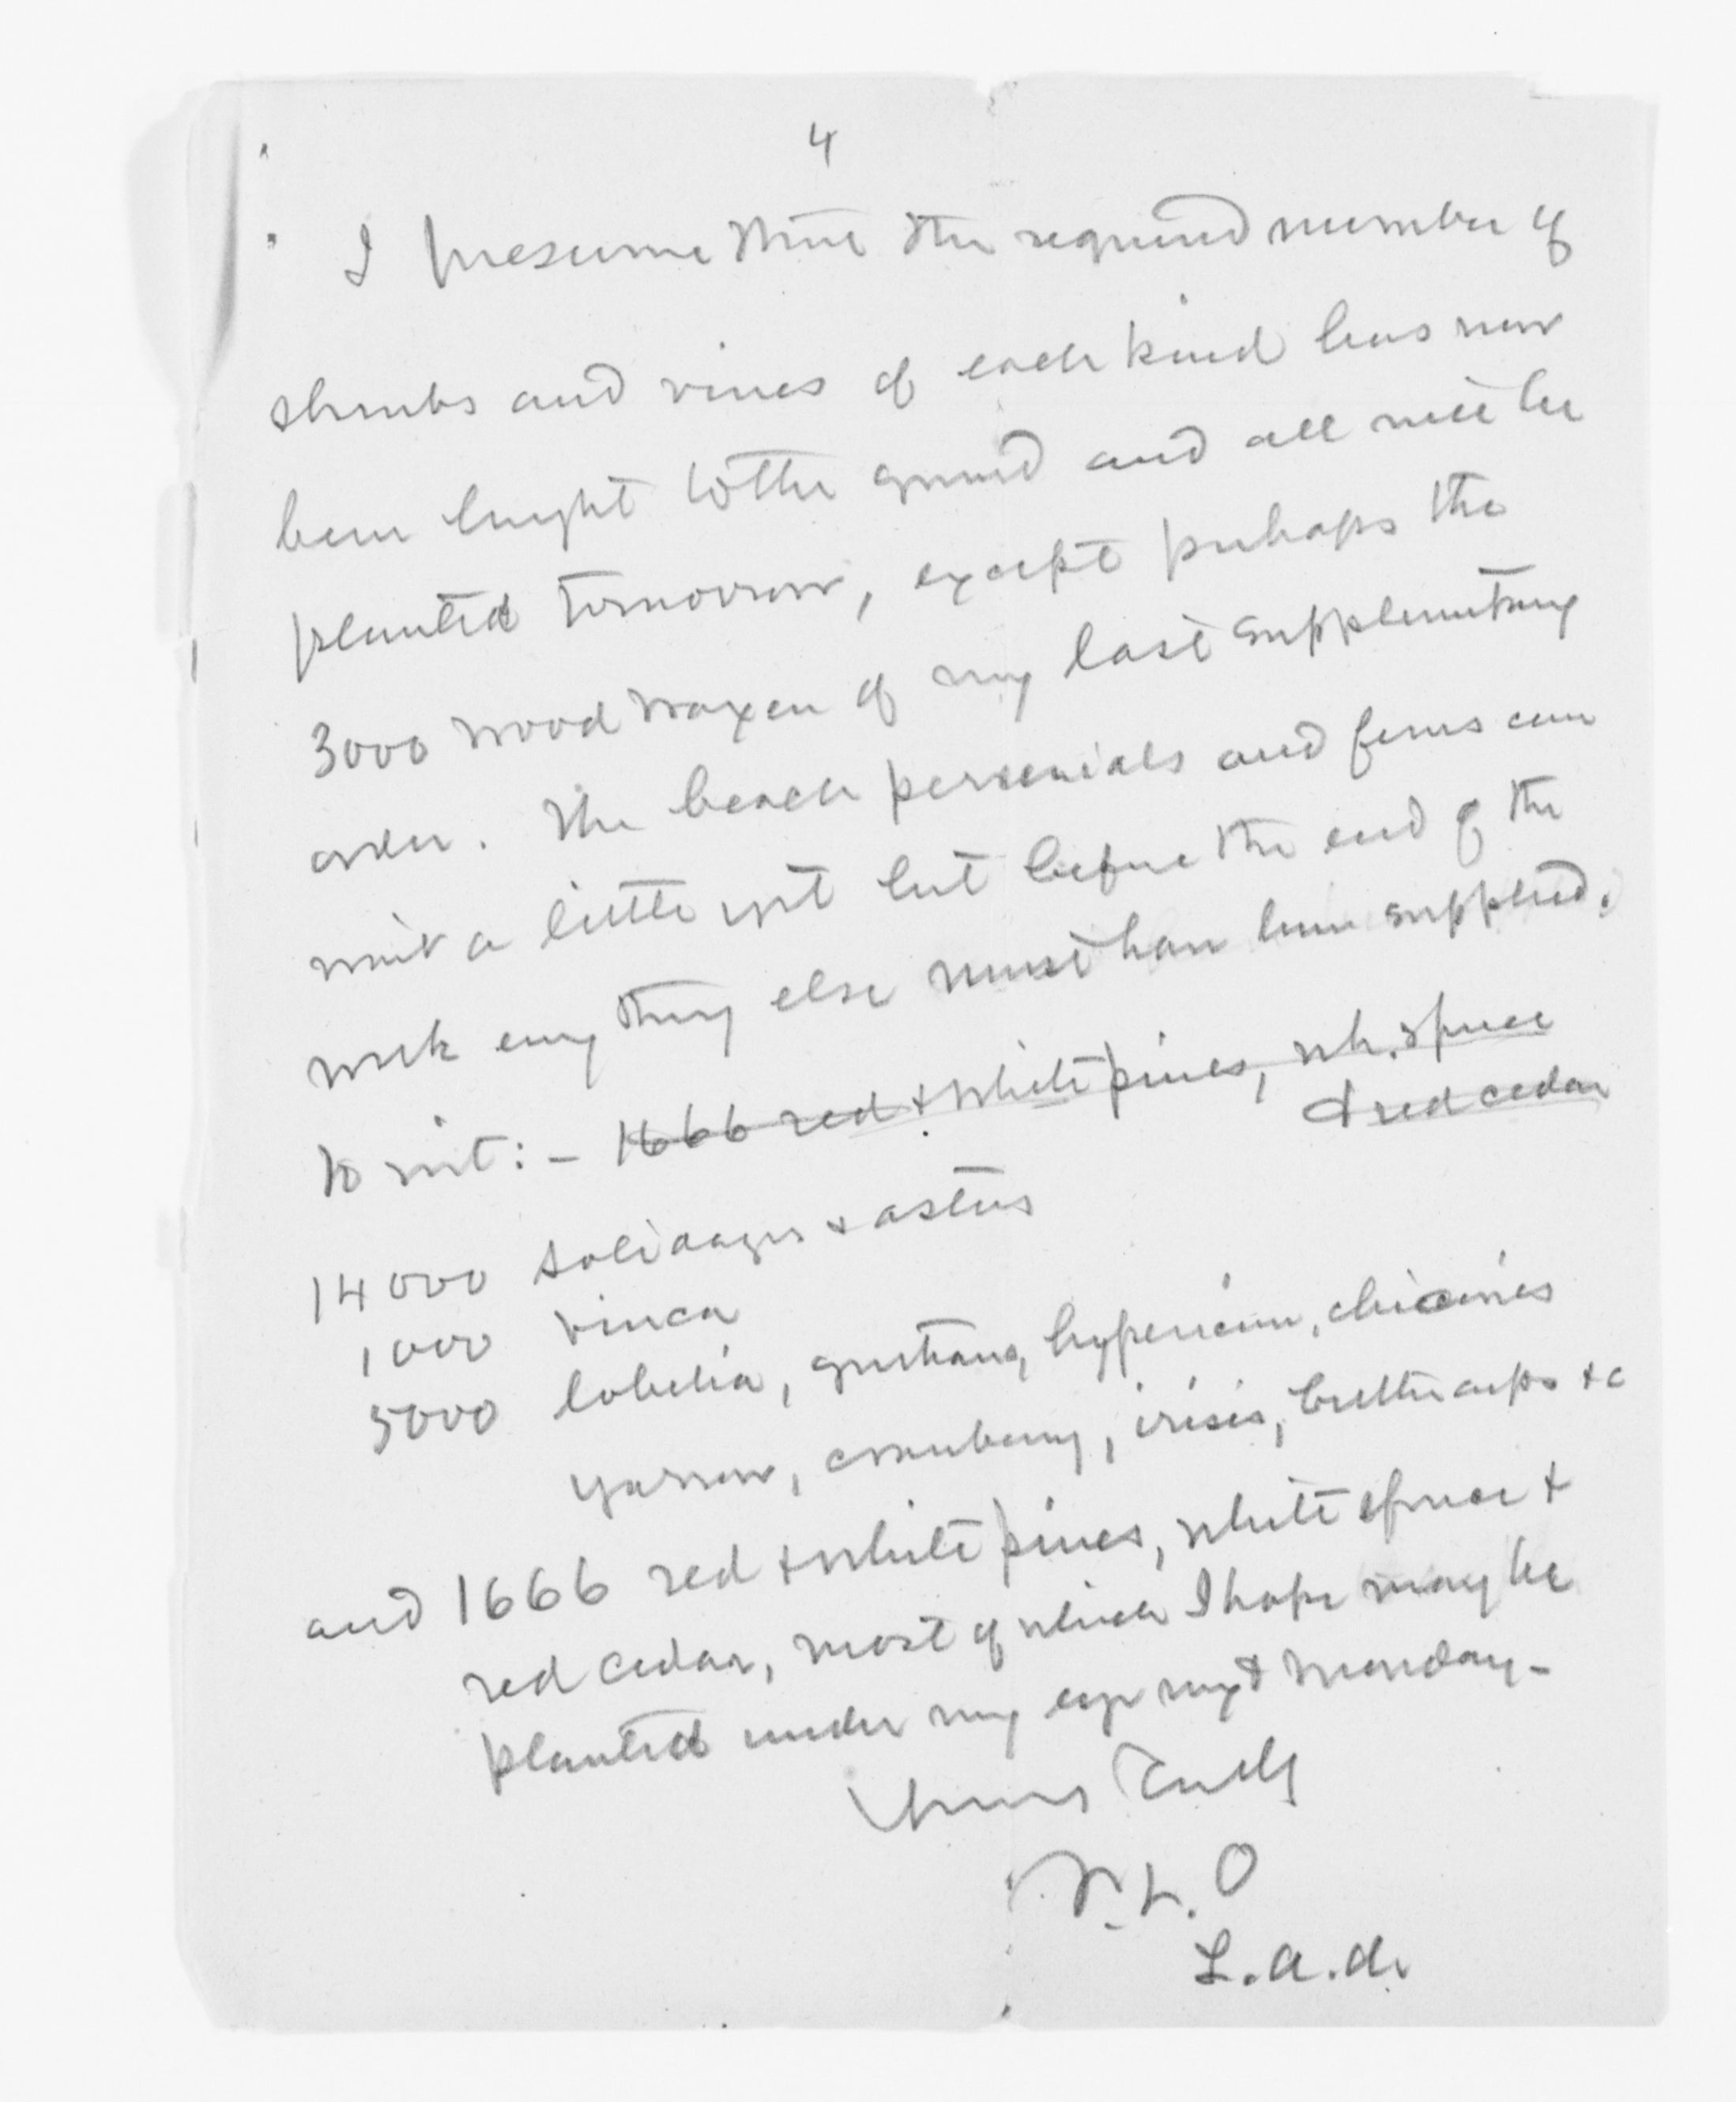 4
I presume that the required number of
shrubs and vines of each kind has now
been brought to the ground and all will be
planted tomorrow, except perhaps the
3000 wood waxen of my last supplementary
order. The beach perennials and ferns can
wait a little yet but before the end of the
week every thing else must have been supplied.
to wit: - 1666 red & white pines, wh. spruce
& red cedar
14000 solidagos & asters
1000 vinca
5000 lobelia, gentians, hypericum,
yarrow, cranberry, irisis, buttercups &c
and 1666 red & white pines, white spruce &
red cedar, most of which I hope may be
planted under my eye next Monday-
Yours Truly
F. L. O
L.a.d.